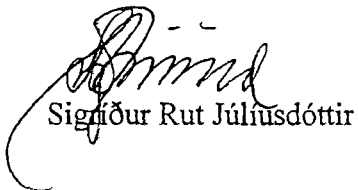 Sigríður Rut Júlíusdóttir